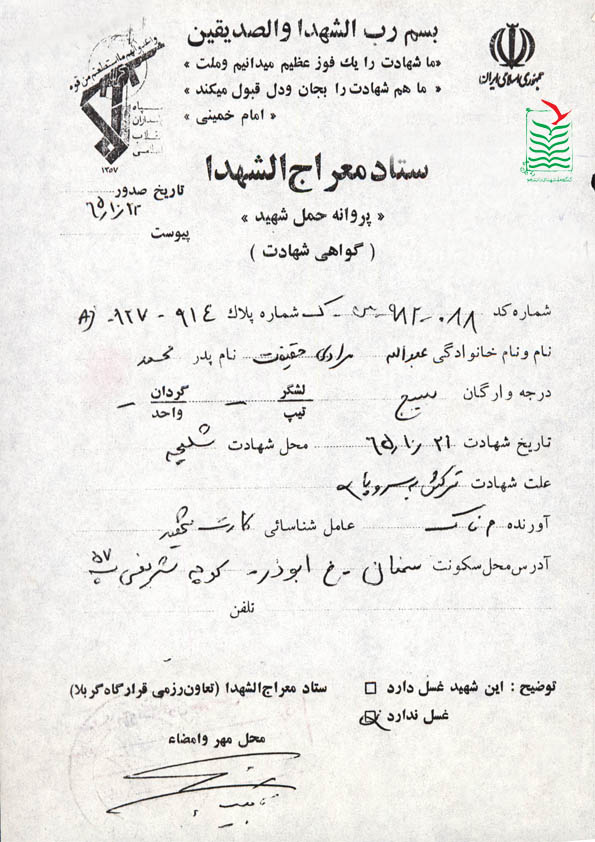 بسم رب الشهدا والصدیقین
جمهوری اسلامی ایران
«ما شهادت را یك فوز عظیم میدانیم وملت»
« ما هم شهادت را بجان ودل قبول میکند »
« امام خمینی »
سپاه
پاسداران
انقلاب
اسلامی
۱۳۵۷
ستاد معراج الشهدا
تاریخ صدور ۶۵/۱۰/۲۳
« پروانه حمل شهید »
پیوست
( گواهی شهادت )
شماره کد ۰۸۸-۹۸۲ شماره پلاك ۹۱٤-۹۲۷-AJ
نام ونام خانوادگی عبدالله مرادی حقیقت نام پدر محمد
درجه وارگان بسیج لشگر تیپ – گردان واحد –
تاریخ شهادت ۶۵/۱۰/۲۱ محل شهادت شلمچه
علت شهادت ترکش به سر و پا
آورنده عامل شناسائی کارت
آدرس محل سکونت سمنان - خ ابوذر - کوچه شریفی پ ۵۷
تلفن
توضیح : این شهید غسل دارد
غسل ندارد
ستاد معراج الشهدا (تعاون رزمی قرارگاه کربلا)
محل مهر وامضاء